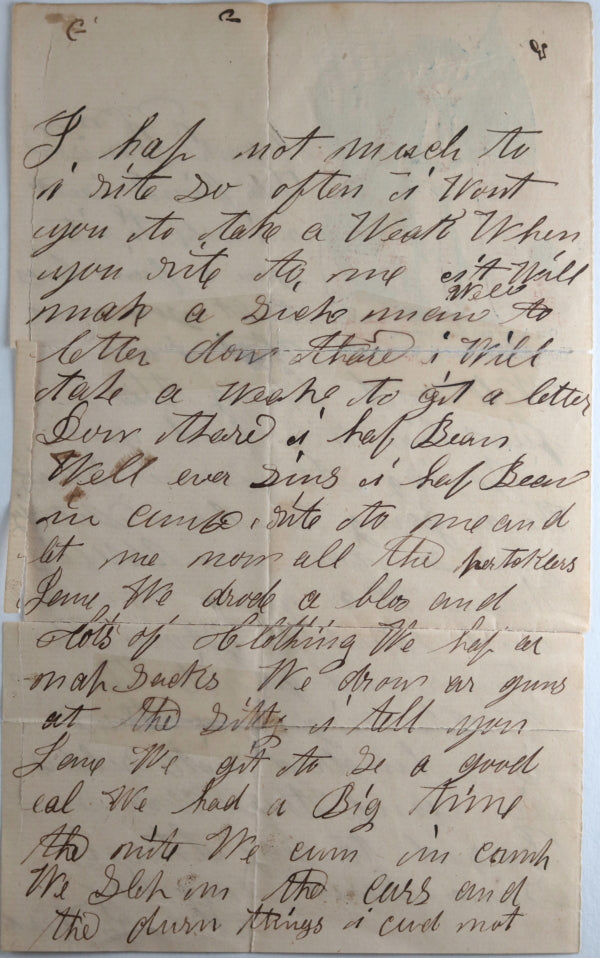 I haf not much to
i rite so often i Wont
you to take a Weak When
you rite to me it Will
Well
mak a sick man to
letter don thare i Will
take a weake to git a letter
Don thare i haf Bean
Well ever sins i haf Bean
in camp i rite to me and
let me now all the pertoklers
Jane We drode a blos and
lots of Clothing We haf ar
nap sacks We drow ar guns
at the sitty i tell you
Jane We git to se a good
eal We had a Big time
the nite We cum in camp
We slep in the cars and
the durn things i cud not